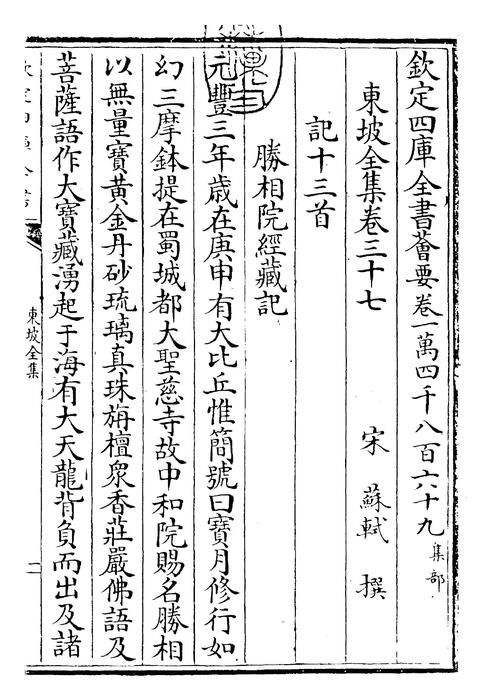 欽定四庫全書薈要卷一萬四千八百六十九 集部
東坡全集卷三十七
宋 蘇軾 撰
記十三首
勝相院經藏記
元豐三年歲在庚申有大比丘惟簡號曰寶月修行如
幻三摩鉢提在蜀城都大聖慈寺故中和院賜名勝相
以無量寶黃金丹砂琉璃真珠旃檀眾香莊嚴佛語及
菩薩語作大寶藏湧起于海有大天龍背負而出及諸
東坡全集